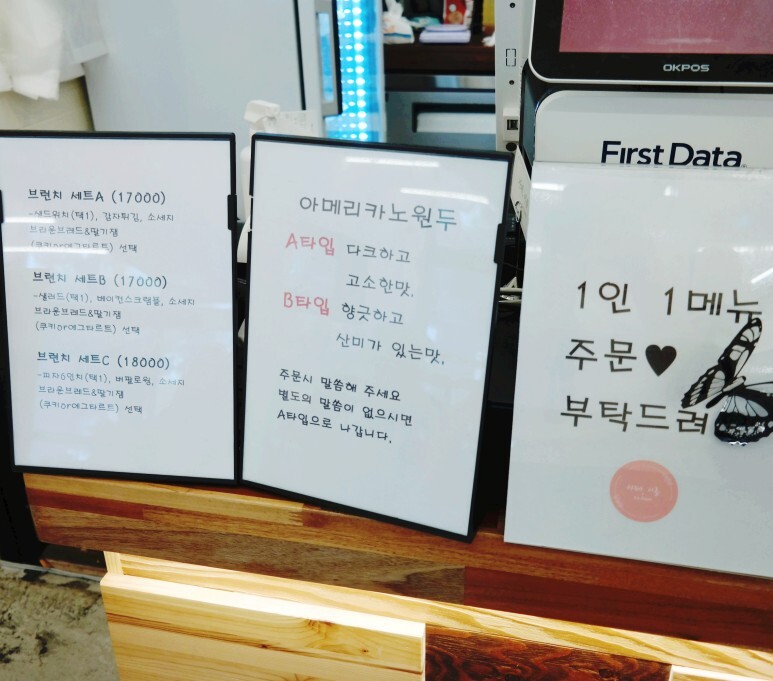 브런치 세트A (17000)
-샌드위치(택1), 감자튀김, 소세지
브라운브레드&딸기잼
(쿠키or에그타르트) 선택
브런치 세트B (17000)
-샐러드(택1), 베이컨스크램블, 소세지
브라운브레드&딸기잼
(쿠키or에그타르트) 선택
브런치 세트C (18000)
-피자6인치(택1), 버팔로윙, 소세지
브라운브레드&딸기잼
(쿠키or에그타르트) 선택
아메리카노원두
A타입 다크하고
고소한맛.
B타입 향긋하고
산미가 있는맛.
주문시 말씀해 주세요
별도의 말씀이 없으시면
A타입으로 나갑니다.
OKPOS
First Data
1인 1메뉴
주문♥
부탁드려